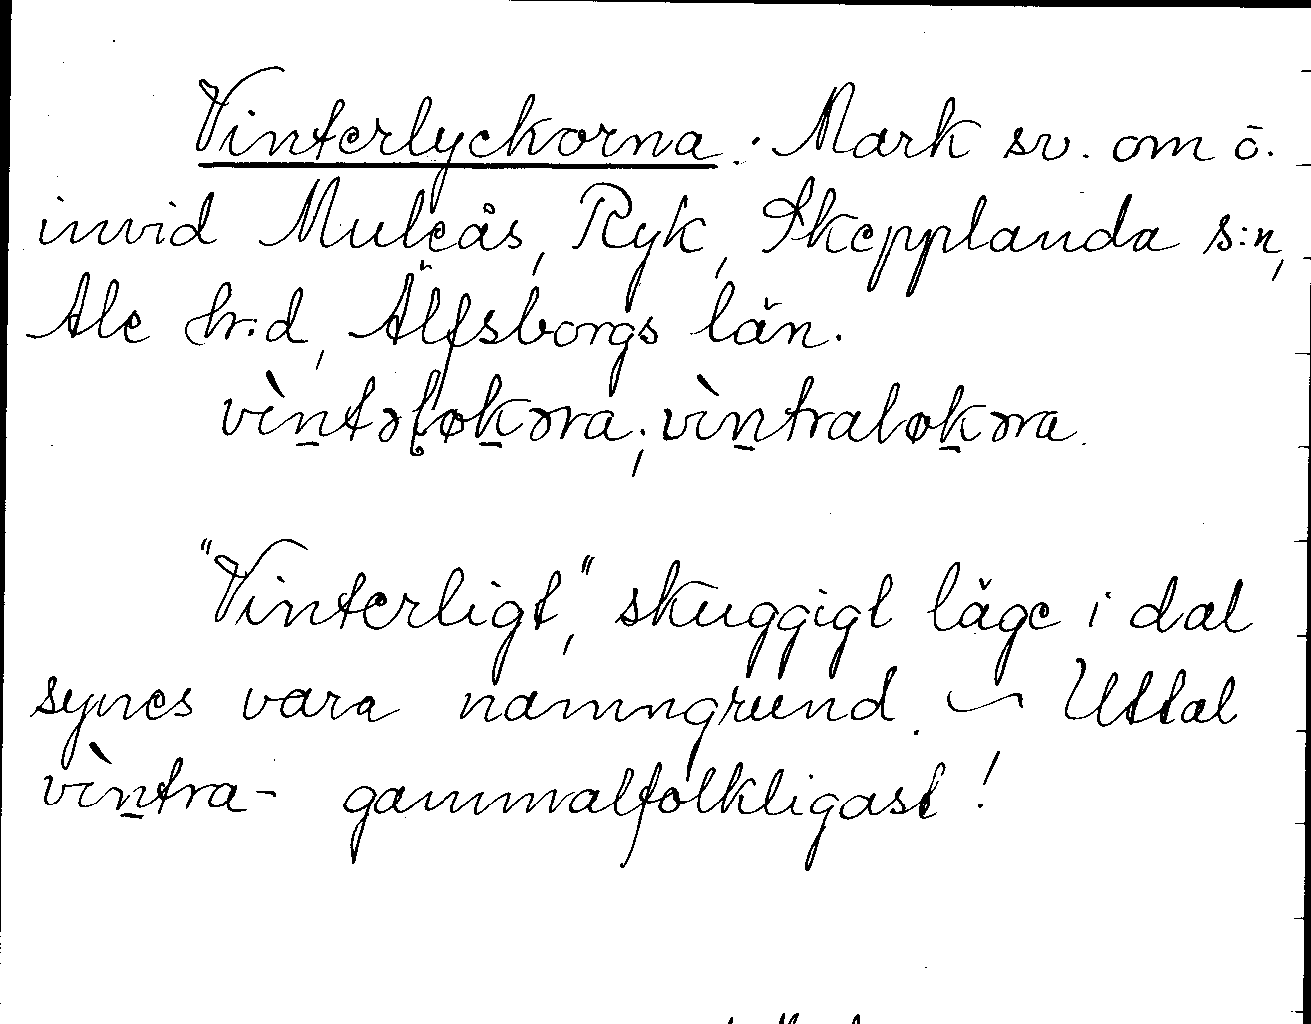 Vinterlyckorna. Mark sv. om ö.
invid Muleås, Ryk, Skepplanda s:n,
Ale h:d, Älfsborgs län.
vìntəḷøkəra; vìntraløkəra.
"Vinterligt", skuggigt läge i dal
synes vara namngrund. ~ Uttal
vìntra- gammalfolkligast!